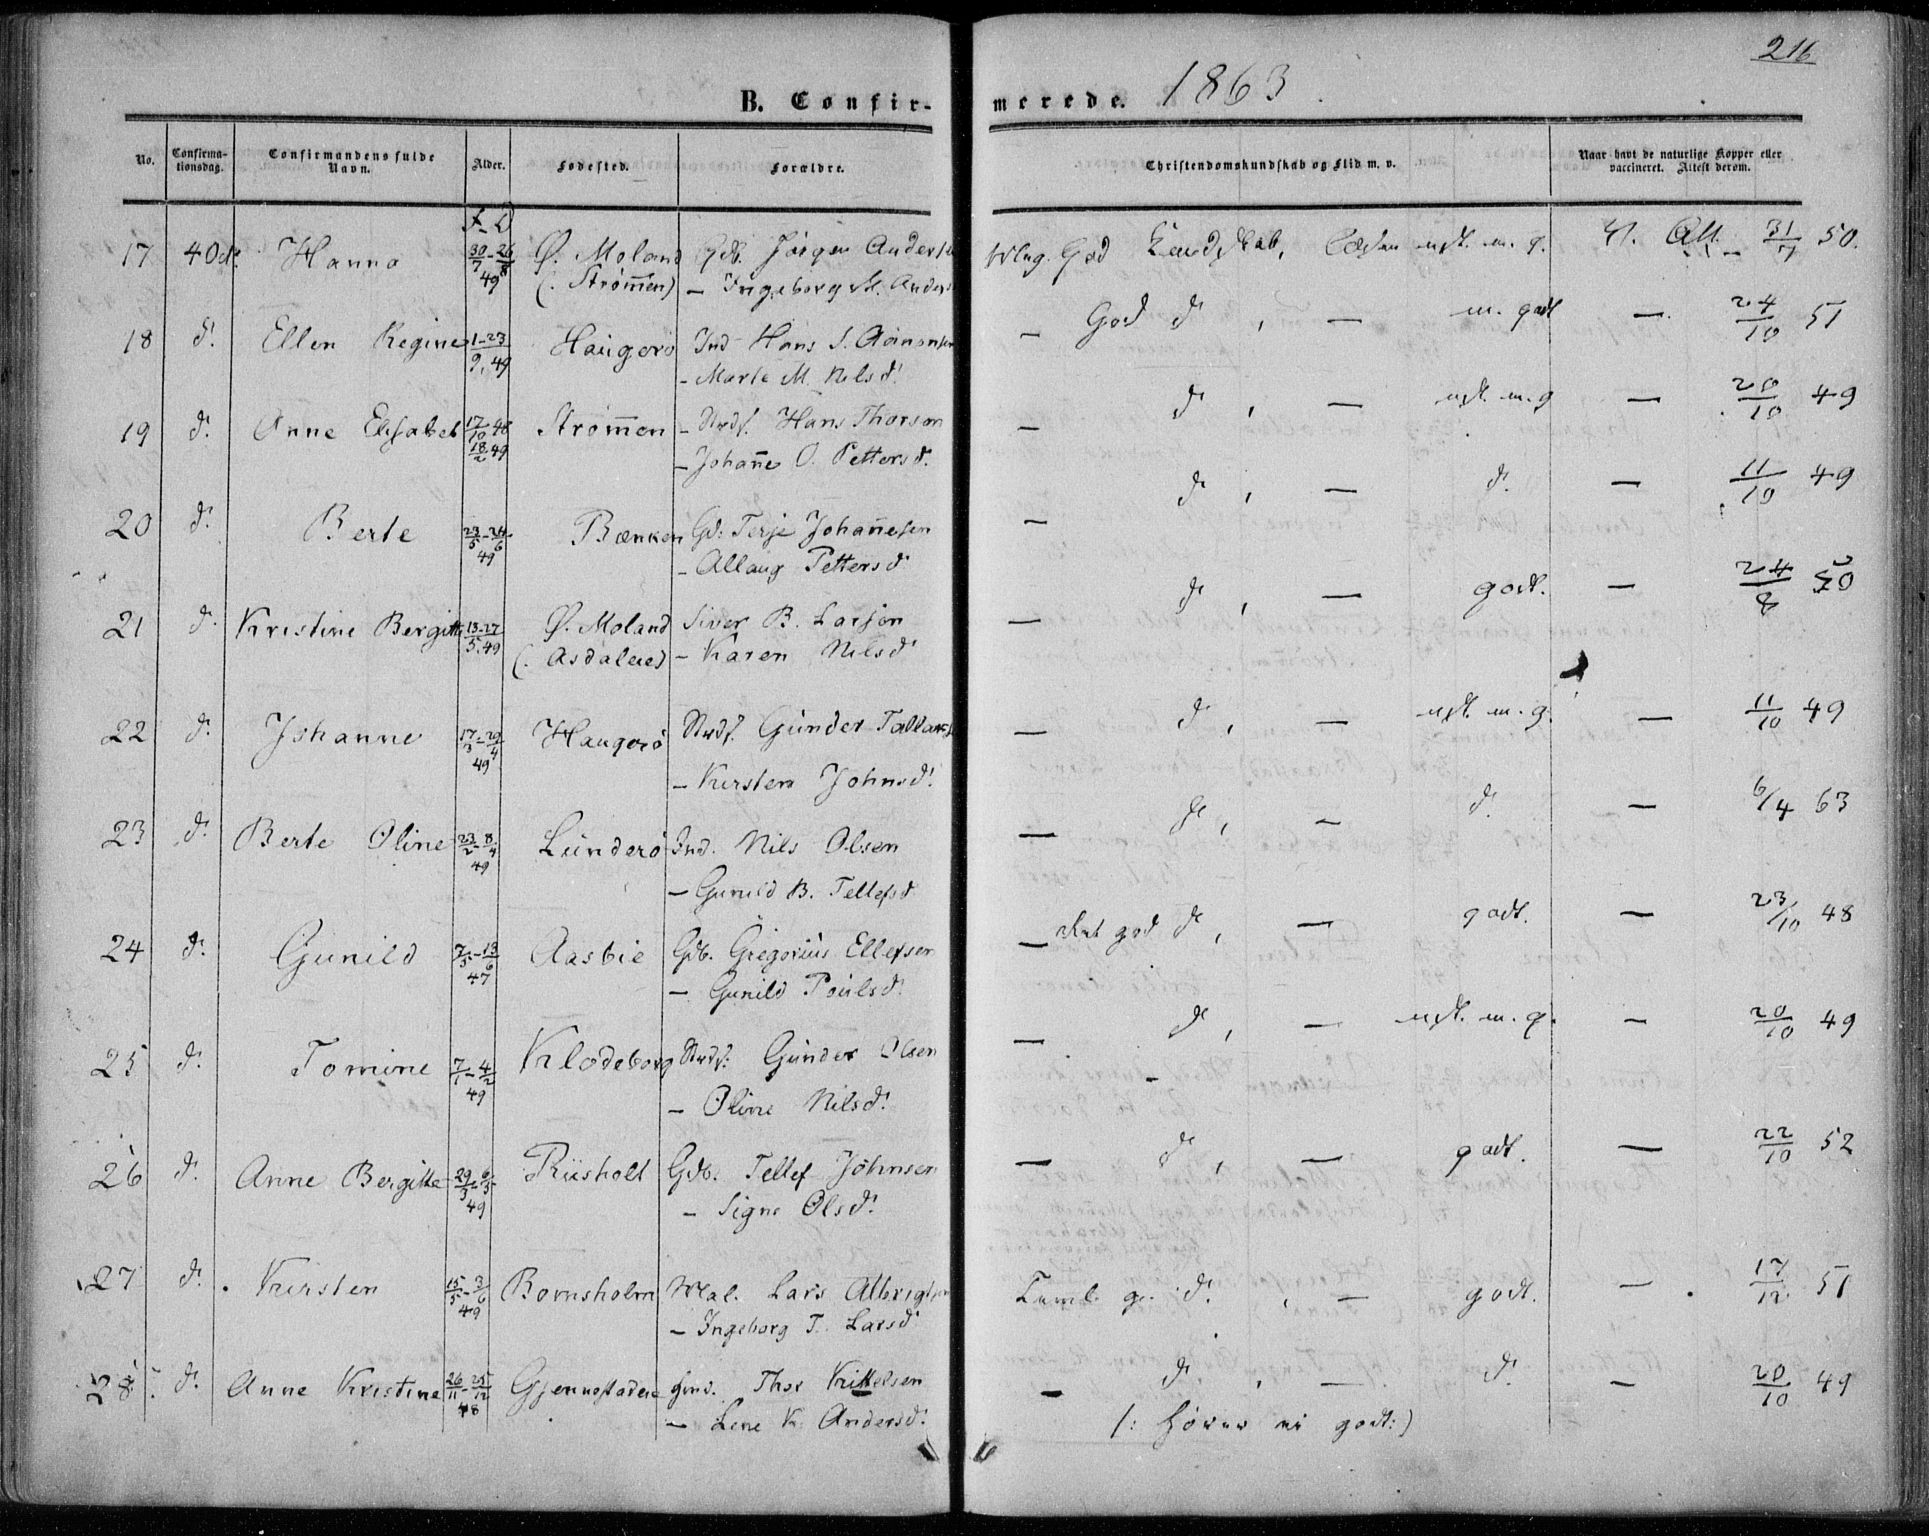 216
B. Confirmerede. 1863
No.
Confirmationsdag.
Confirmandens fulde Navn.
Alder.
Fødested.
Forældre.
Christendomskundskab og Flid m. v.
Naar havt de naturlige Kopper eller vaccineret. Attest derom.
17 Hanna 30/7 - 26/8 49 Ø. Moland Gdb. Jørgen Anders
(: Strømmen) - Ingeborg M. Anders
God Kundskab, m. g. Att. 31/7 50.
18 d. Ellen Regine 1-23 9. 49 Haugerø Ind Hans S. Aanonsen
- Marte M. Nilsd.
- God d , - m. godt - 24/10 51
19 d. Anne Elisabet 17/10 48 18/2 49 Strømmen - Hans Thorson
- Johanne O. Pettersd.
- d , - m. g - 20/10 49
20 d. Berte 23/5 - 24/6 49 Bænken Gd: Terje Johannesen
- Allaug Pettersd
- d , - d. - 11/10 49
21 d. Kristine Bergitte 13-27 5. 49 Ø. Moland Siver B. Larson
(: Asdalene) - Karen Nilsd
- d , - godt. - 24/8 50
22 d. Johanne 17/3 - 29/4 49 Haugerø Gunder Tallaks
- Kirsten Johnsd.
- d , - m. g. - 11/10 49
23 d. Berte Oline 23/2 - 8/4 49 Lunderø Ind. Nils Olsen
- Gunild B. Tellefsd
- d , - d. - 6/4 63
24 d. Gunild 7/5 - 13/6 47 Aasbie Gdb. Gregorius Ellefsen
- Gunild Poulsd.
- god d , - godt. - 23/10 48
25 d. Tomine 7/1 - 4/2 49 Klodeborg Gunder Olsen
- Oline Nilsd.
- d , - m. g. - 20/10 49
26 d. Anne Bergitte 29/3 - 6/5 49 Riisholt Gdb. Tellef Johnsen
- Signe Olsd.
- d , - godt. - 22/10 52
27 d. Kirsten 15/5 - 3/6 49 Bornsholm Mal. Lars Albrigtsen
- Ingeborg T. Larsd
Teml. g. d. , - godt. - 17/12 51
28. d. Anne Kristine 26/11 - 25/12 48 Gjennestadene Thor Kittelsen
- Lene K. Andersd.
- d , - d. - 20/10 49
(: hører ei godt :)